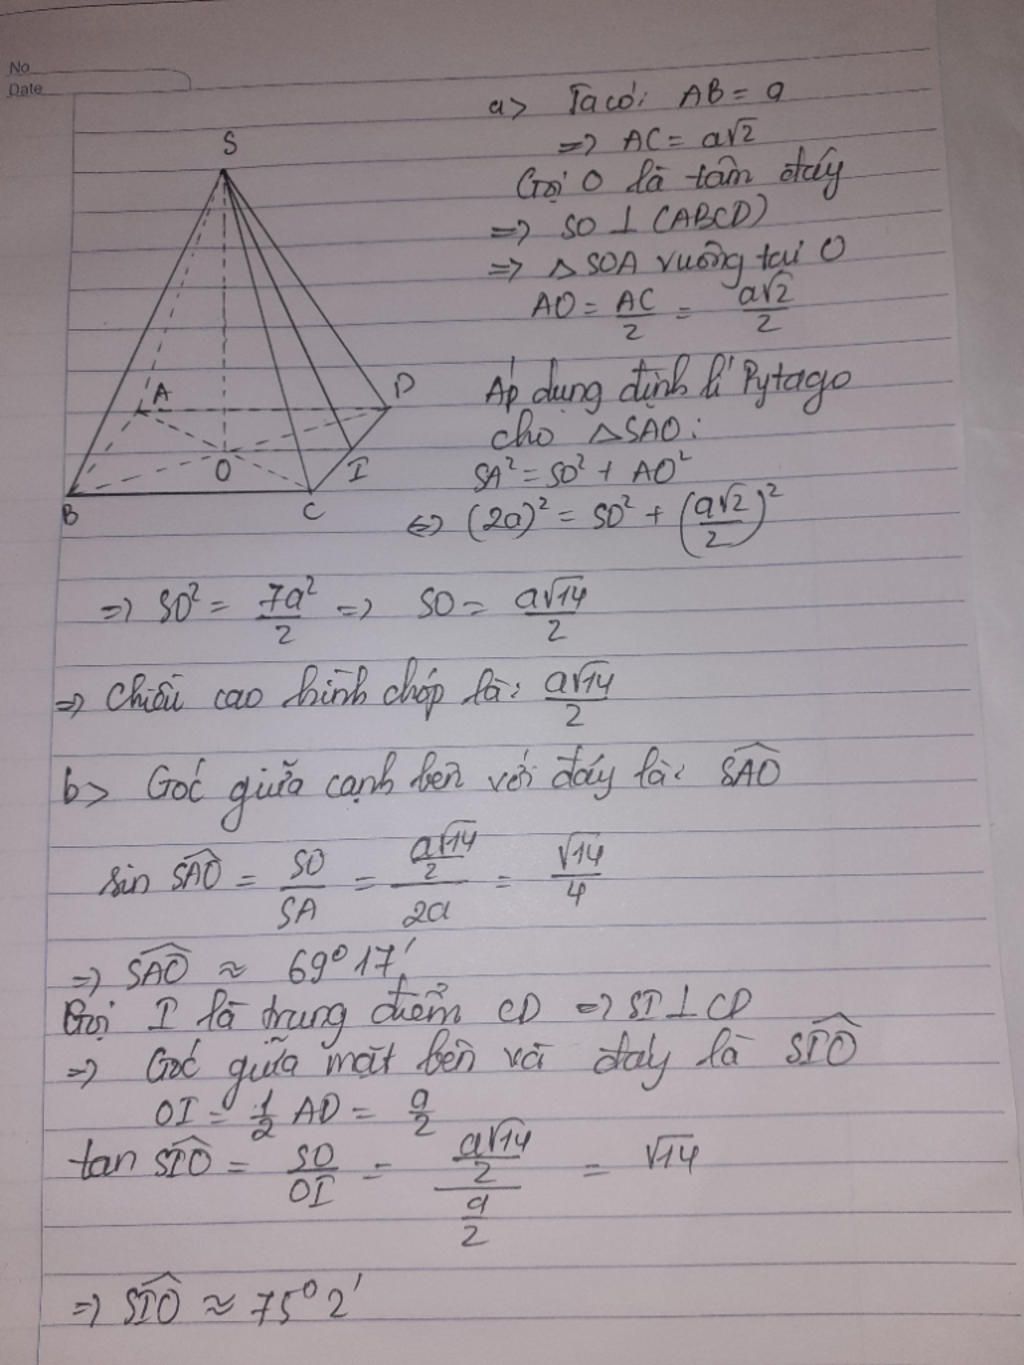 No
Date
S
A
D
O
I
B
C
a> Ta có: AB = a
=> AC = a√2
Gọi O là tâm đáy
=> SO ⊥ (ABCD)
=> △SOA vuông tại O
AO = AC/2 = a√2/2
Áp dụng định lí Pytago
cho △SAO:
SA² = SO² + AO²
<=> (2a)² = SO² + (a√2/2)²
=> SO² = 7a²/2 => SO = a√14/2
=> Chiều cao hình chóp là: a√14/2
b> Góc giữa cạnh bên với đáy là: \widehat{SAO}
sin \widehat{SAO} = SO/SA = (a√14/2)/(2a) = √14/4
=> \widehat{SAO} ≈ 69°17'
Gọi I là trung điểm CD => SI ⊥ CD
=> Góc giữa mặt bên và đáy là \widehat{SIO}
OI = 1/2 AD = a/2
tan \widehat{SIO} = SO/OI = (a√14/2)/(a/2) = √14
=> \widehat{SIO} ≈ 75°2'